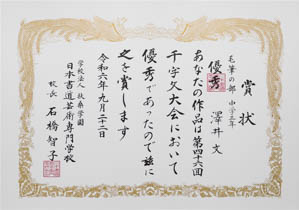 賞状
毛筆の部 中学三年
優秀 澤井 文
あなたの作品は第四十六回
千字文大会において
優秀であったので茲に
之を賞します
令和六年九月二十二日
学校法人 扶桑学園
日本書道芸術専門学校
校長 石橋智子